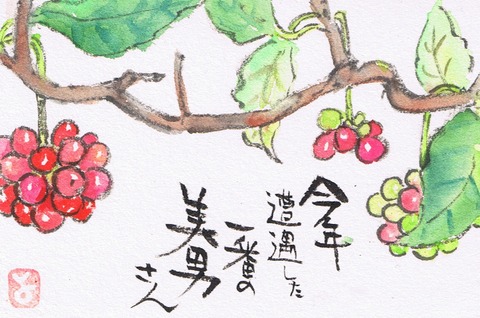 今年
遭遇した
一番の
美男
さん